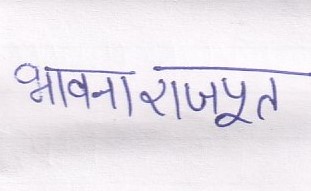 भावना राजपूत